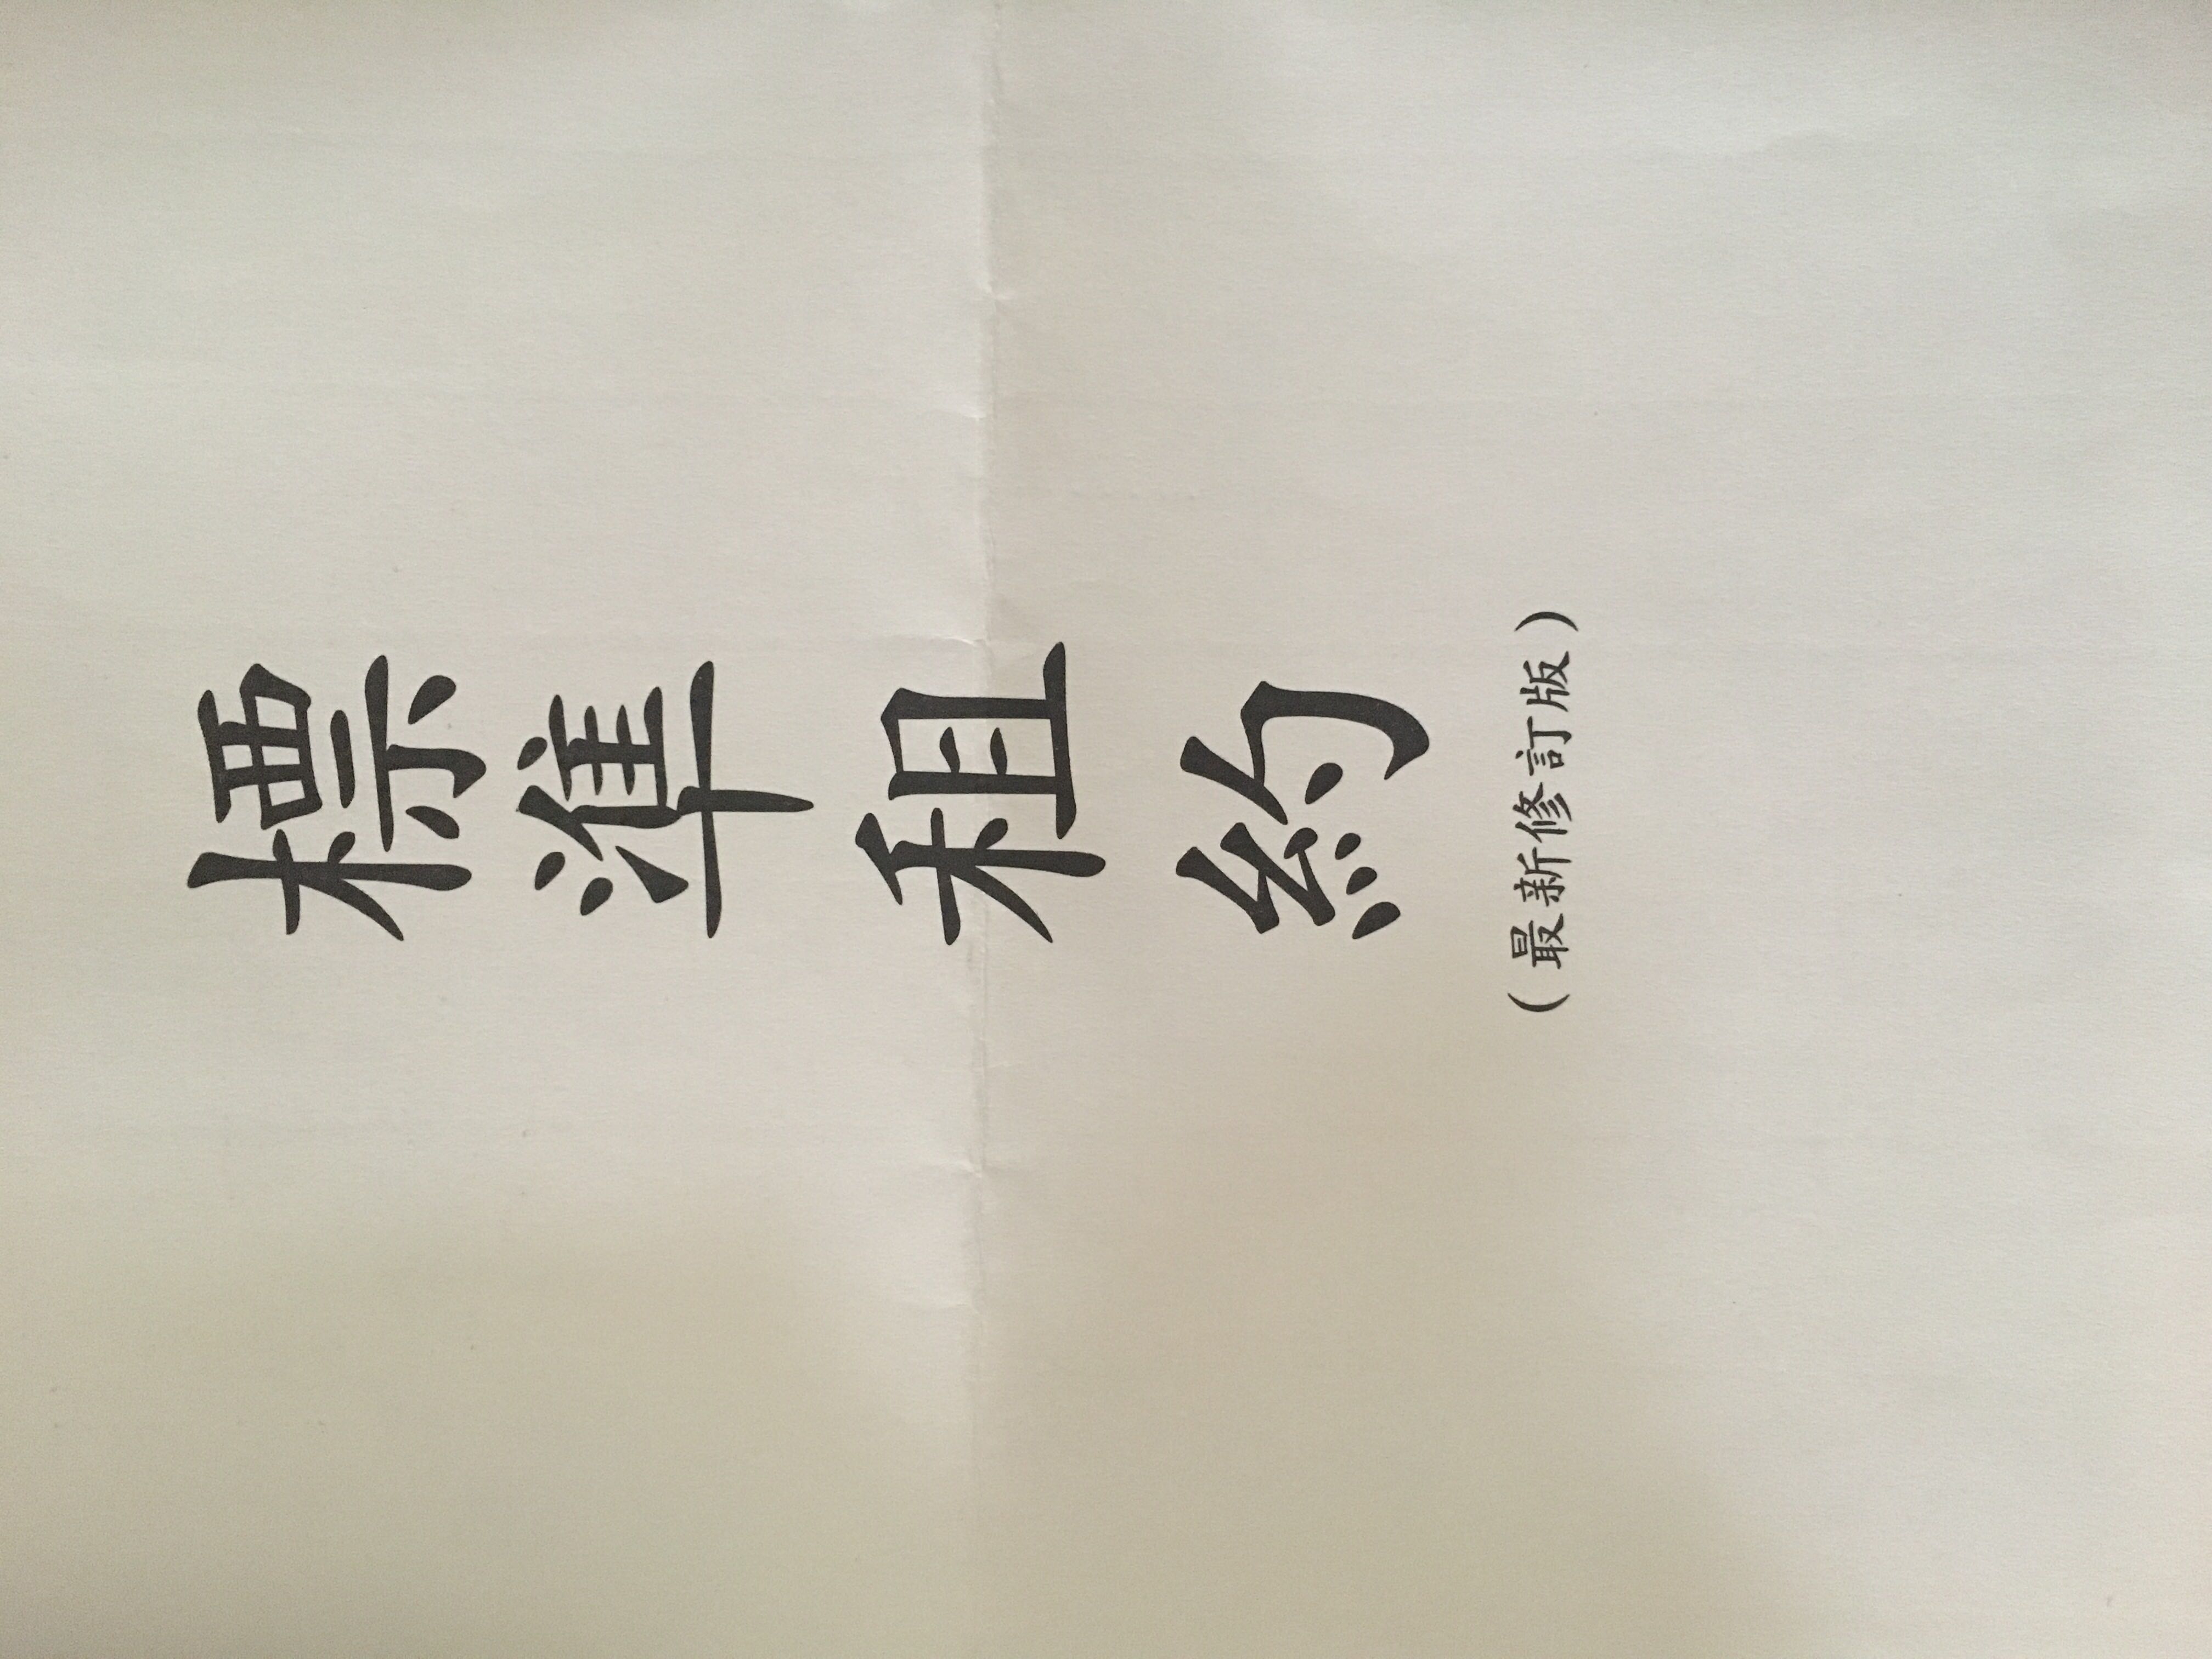 標
準
租
約
(最新修訂版)